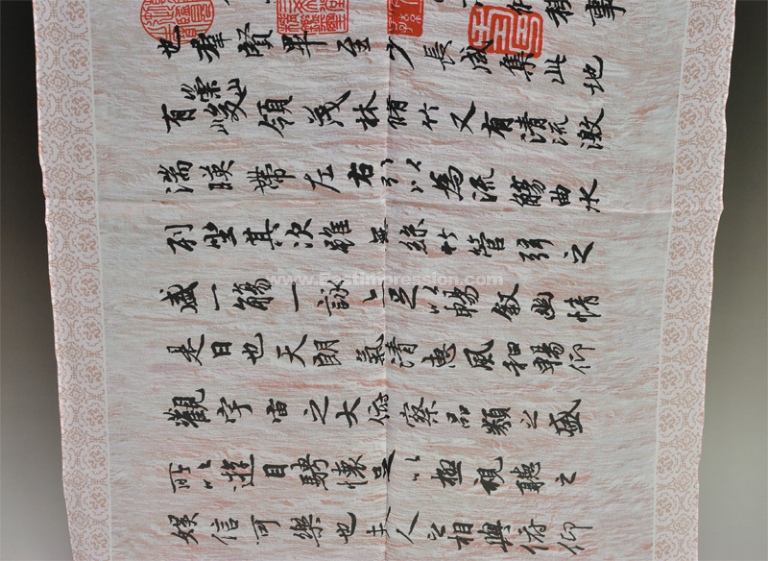 稧事
也羣賢畢至少長咸集此地
有崇山峻領茂林脩竹又有清流激
湍暎帶左右引以為流觴曲水
列坐其次雖無絲竹管弦之
盛一觴一詠亦足以暢敘幽情
是日也天朗氣清惠風和暢仰
觀宇宙之大俯察品類之盛
所以遊目騁懷足以極視聽之
娛信可樂也夫人之相與俯仰
www.EastImpression.com